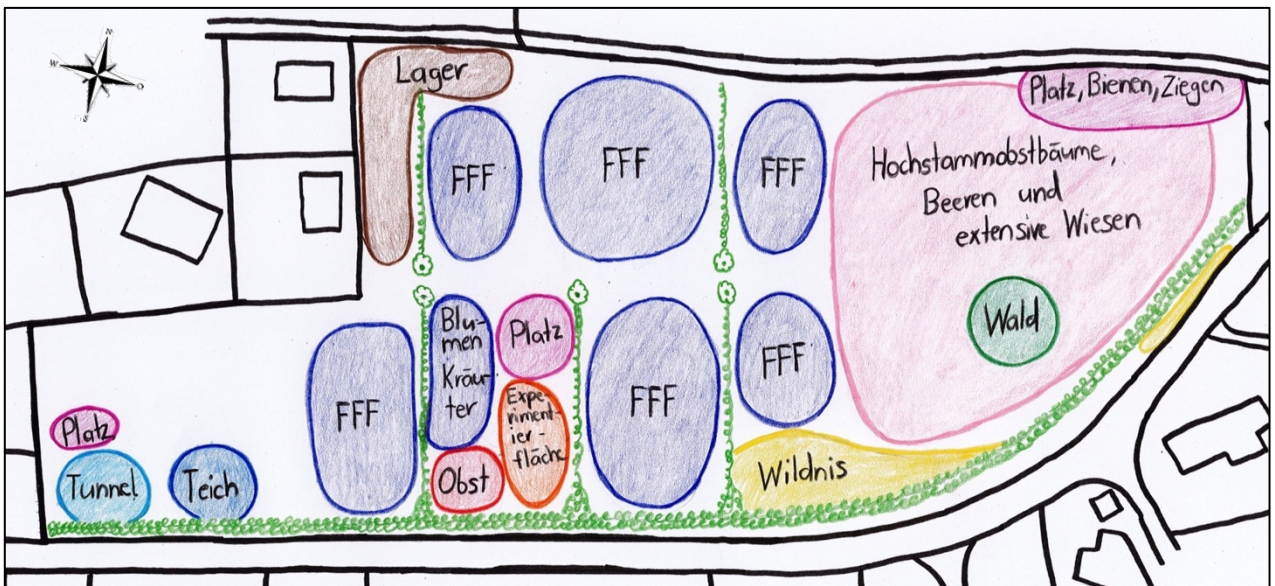 N
W
O
S
Lager
Platz, Bienen, Ziegen
FFF
FFF
FFF
Hochstammobstbäume,
Beeren und
extensive Wiesen
Wald
Blu-
men
Kräu-
ter
Platz
FFF
FFF
FFF
Expe-
riment-
ier-
fläche
Platz
Tunnel
Teich
Obst
Wildnis